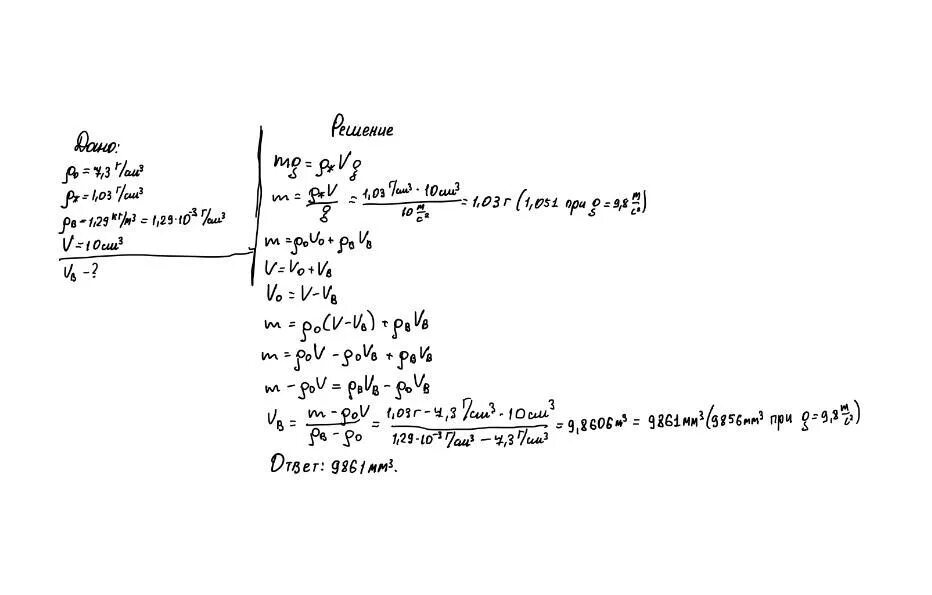 Дано:
ρ₀ = 7,3 г/см³
ρж = 1,03 г/см³
ρв = 1,29 кг/м³ = 1,29·10⁻³ г/см³
V = 10 см³
Vв - ?
Решение
mg = ρж V g
m = ρжV/g = 1,03 г/см³ · 10 см³ / 10 м/с² = 1,03 г (1,051 при g = 9,8 м/с²)
m = ρ₀V₀ + ρвVв
V = V₀ + Vв
V₀ = V - Vв
m = ρ₀(V - Vв) + ρвVв
m = ρ₀V - ρ₀Vв + ρвVв
m - ρ₀V = ρвVв - ρ₀Vв
Vв = m - ρ₀V / ρв - ρ₀ = 1,03 г - 7,3 г/см³ · 10 см³ / 1,29·10⁻³ г/см³ - 7,3 г/см³ = 9,8606 м³ = 9861 мм³ (9856 мм³ при g = 9,8 м/с²)
Ответ: 9861 мм³.